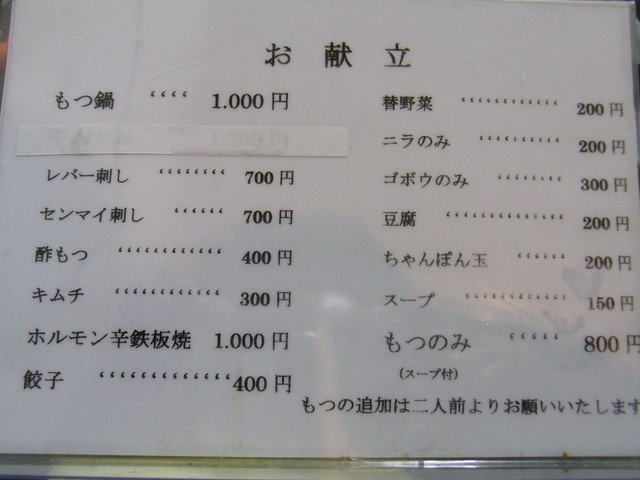 お献立
もつ鍋 ‘‘‘‘ 1.000円
レバー刺し ‘‘‘‘‘‘‘‘ 700円
センマイ刺し ‘‘‘‘‘‘ 700円
酢もつ ‘‘‘‘‘‘‘‘‘‘‘‘ 400円
キムチ ‘‘‘‘‘‘‘‘‘‘‘‘ 300円
ホルモン辛鉄板焼 1.000円
餃子 ‘‘‘‘‘‘‘‘‘‘‘‘‘‘‘400円
替野菜 ‘‘‘‘‘‘‘‘‘‘‘‘ 200円
ニラのみ ‘‘‘‘‘‘‘‘‘‘ 200円
ゴボウのみ ‘‘‘‘‘‘‘‘ 300円
豆腐 ‘‘‘‘‘‘‘‘‘‘‘‘‘‘ 200円
ちゃんぽん玉 ‘‘‘‘‘‘ 200円
スープ ‘‘‘‘‘‘‘‘‘‘‘‘ 150円
もつのみ ‘‘‘‘‘ 800円
(スープ付)
もつの追加は二人前よりお願いいたします